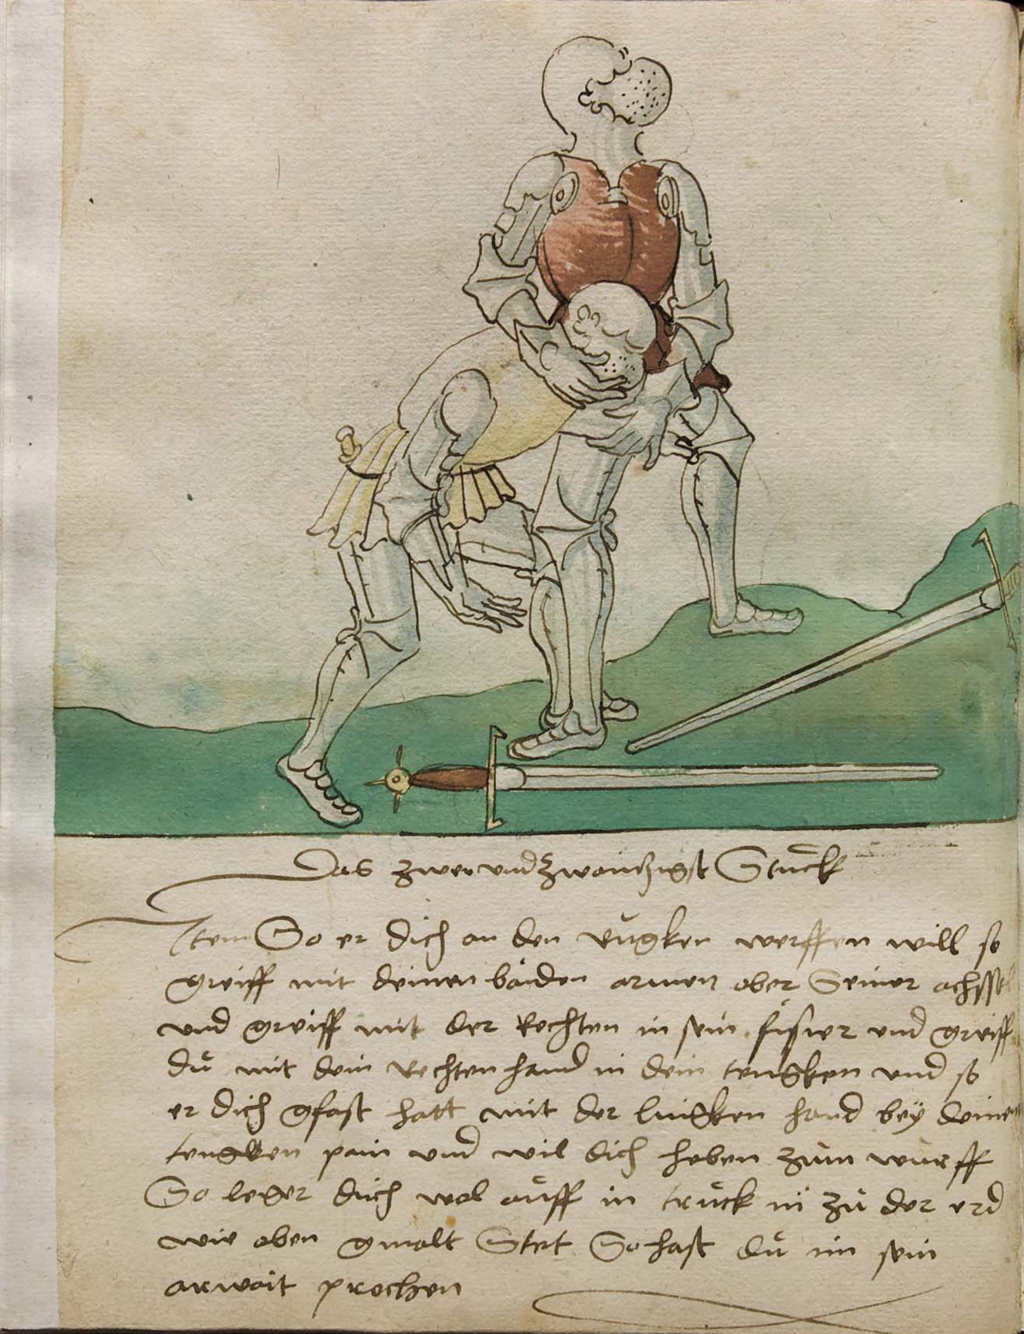 Das zwen und zwanzigst Stuck
Item So er dich an den rügken werffen will so
greiff mit deinen baiden armen ober Seiner achssel
und greiff mit der Rechten in sein fisier und greiff
dü mit dein rechten hand in dein tengken und so
er dich gfast hatt mit der lingken hand bey deine
tengken pain und wil dich heben züm würff
So leger dich wol aüff in trück in zü der erd
wie oben gmalt Stet So hast dü im sein
arwait prochen